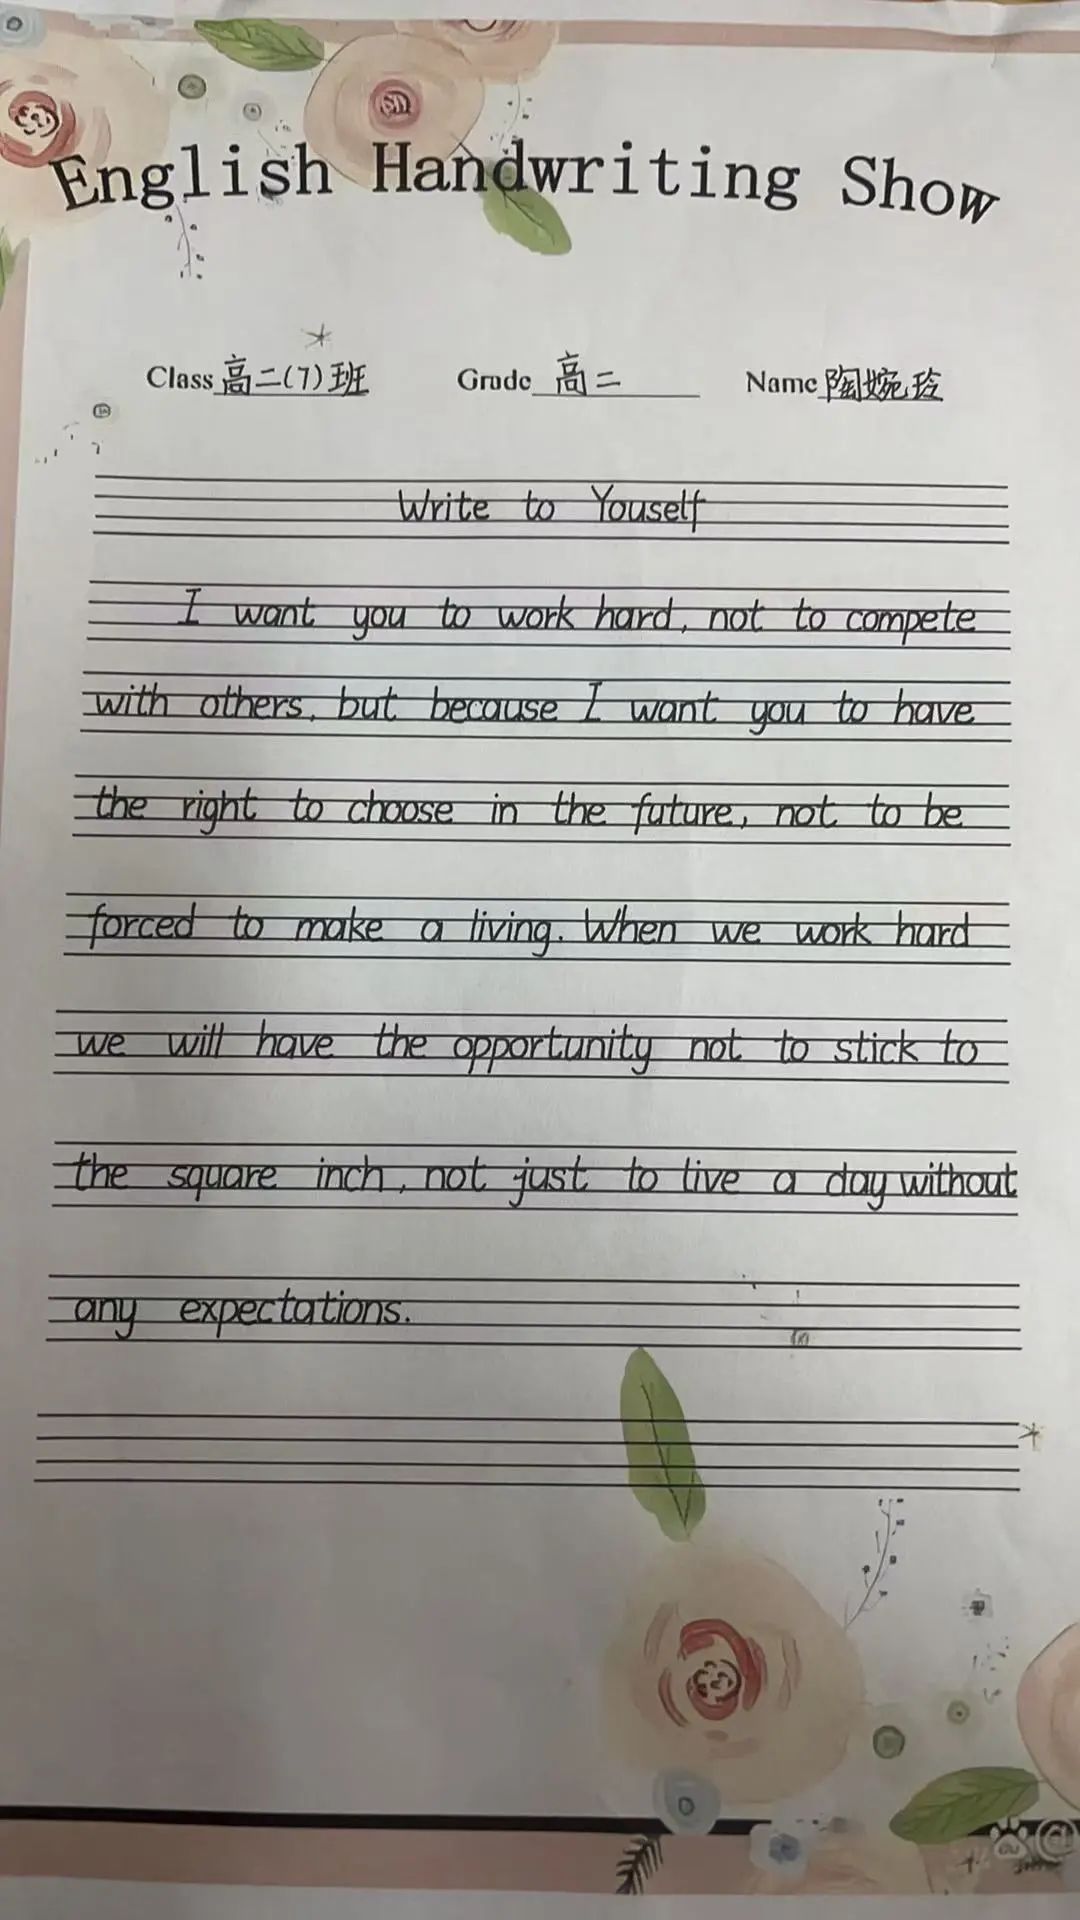 English Handwriting Show
Class 高二(7)班 Grade 高二 Name 陶婉玲
Write to Youself
I want you to work hard, not to compete
with others, but because I want you to have
the right to choose in the future, not to be
forced to make a living. When we work hard
we will have the opportunity not to stick to
the square inch, not just to live a day without
any expectations.